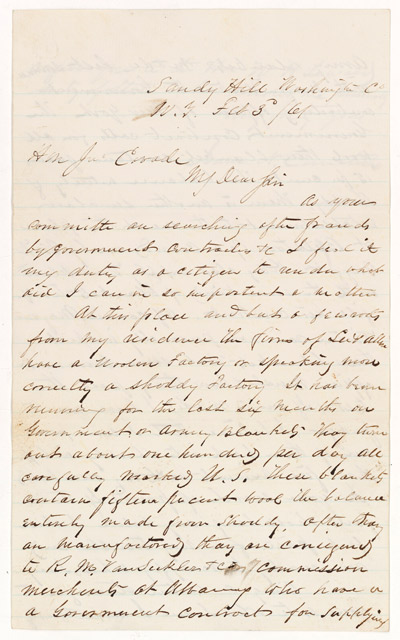 Sandy Hill Washington Co
N. Y. Feb 3d /61
Hon Jn Covode
My Dear Sir
as your
committe are searching after frauds
by government contractors &c I feel it
my duty as a citizen to render what
aid I can in so important a matter
At this place and but a few rods
from my residence the firm of
have a Woolen Factory or speaking more
correctly a shoddy Factory It has been
running for the last six months on
Government or Army Blankets They turn
out about one hundred per day all
carefully marked U. S. These blankets
contain fifteen percent wool the balance
entirely made from Shoddy. after they
are manufactored they are consigned
to R. M. Van Sicklen & Co commission
merchents at Albany who have a
a Government contract for supplying